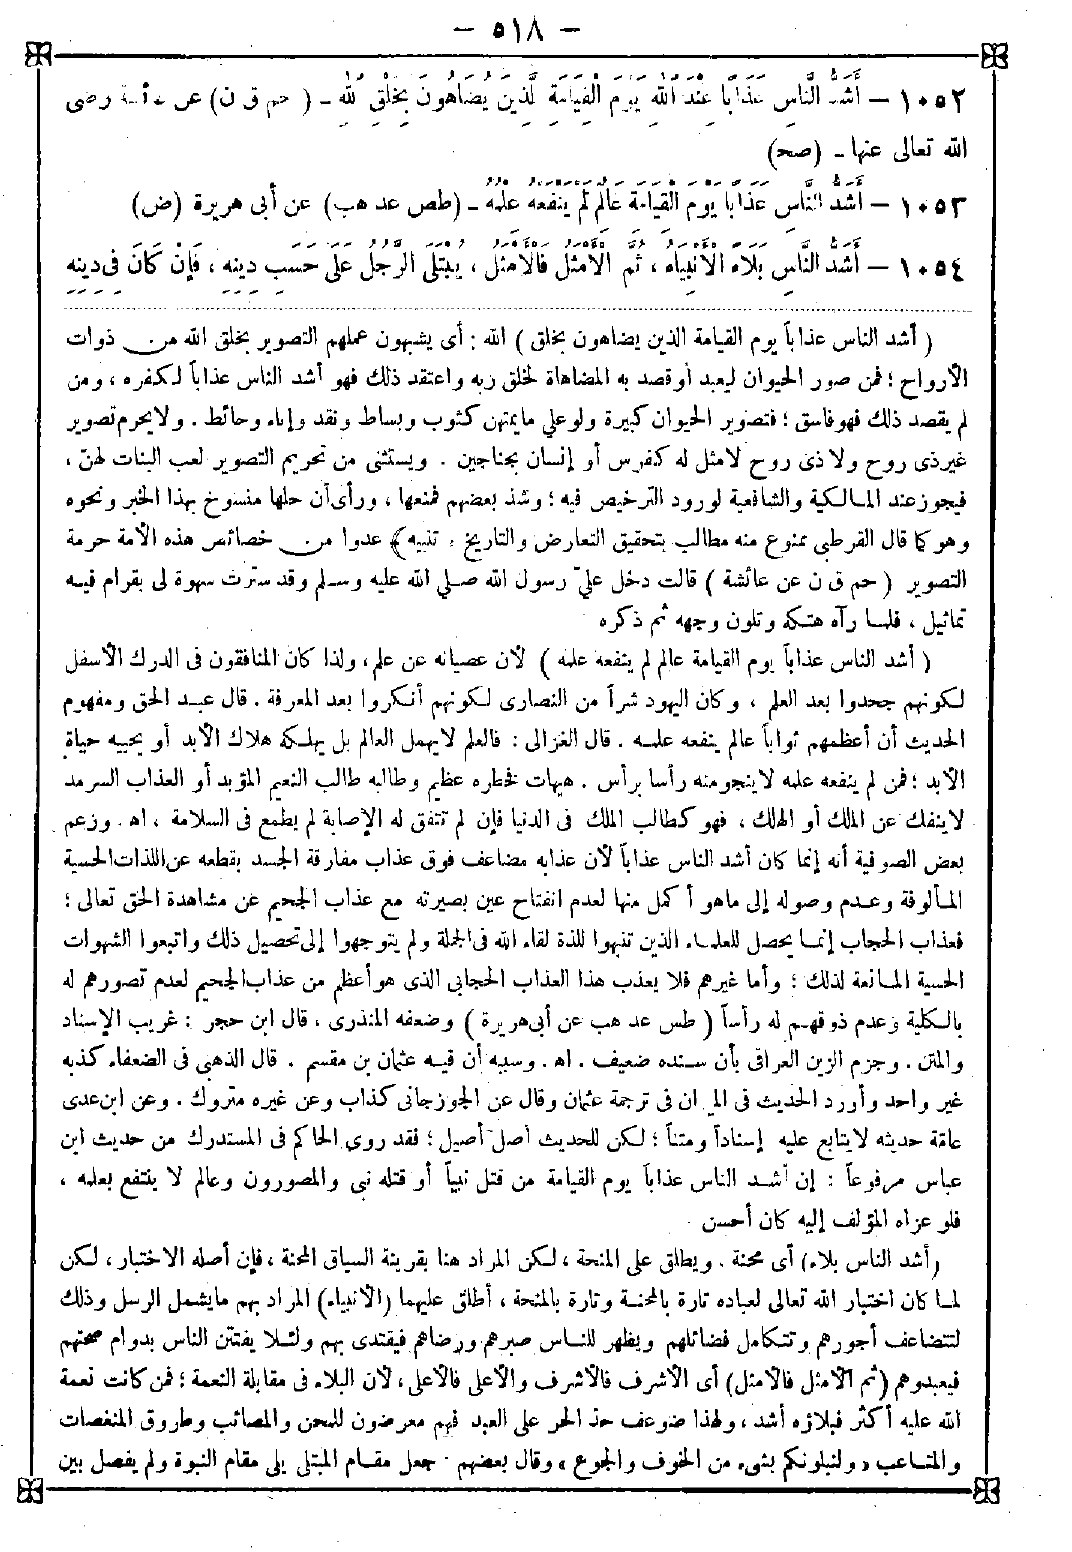 - ٥١٨ -
١٠٥٢ - أَشَدُّ النَّاسِ عَذَابًا عِنْدَ اللهِ يَوْمَ الْقِيَامَةِ الَّذِينَ يُضَاهُونَ بِخَلْقِ اللهِ - ( حم ق ن) عن عائشة رضى
الله تعالى عنها - (صح)
١٠٥٣ - أَشَدُّ النَّاسِ عَذَابًا يَوْمَ الْقِيَامَةِ عَالِمٌ لَمْ يَنْفَعْهُ عِلْمُهُ - (طص عد هب) عن أبى هريرة (ض)
١٠٥٤ - أَشَدُّ النَّاسِ بَلَاءً الْأَنْبِيَاءُ ، ثُمَّ الْأَمْثَلُ فَالْأَمْثَلُ ، يُبْتَلَى الرَّجُلُ عَلَى حَسَبِ دِينِهِ ، فَإِنْ كَانَ فِى دِينِهِ
( أشد الناس عذاباً يوم القيامة الذين يضاهون بخلق ) الله : أى يشبهون عملهم التصوير بخلق الله من ذوات
الأرواح ؛ فمن صور الحيوان ليعبد أو قصد به المضاهاة لخلق ربه واعتقد ذلك فهو أشد الناس عذاباً لكفره ، ومن
لم يقصد ذلك فهو فاسق ؛ فتصوير الحيوان كبيرة ولو على مايمتهن كثوب وبساط ونقد وإناء وحائط . ولايحرم تصوير
غير ذى روح ولا ذى روح لامثل له كفرس أو إنسان بجناحين . ويستثنى من تحريم التصوير لعب البنات لهنّ ،
فيجوز عند المالكية والشافعية لورود الترخيص فيه ؛ وشذ بعضهم فمنعها ، ورأى أن حلها منسوخ بهذا الخبر ونحوه
وهو كما قال القرطبى ممنوع منه مطالب بتحقيق التعارض والتاريخ ، تنبيه﴾ عدوا من خصائص هذه الأمة حرمة
التصوير ( حم ق ن عن عائشة ) قالت دخل علىّ رسول الله صلى الله عليه وسلم وقد سترت سهوة لى بقرام فيه
تماثيل ، فلما رآه هتكه وتلون وجهه ثم ذكره
( أشد الناس عذاباً يوم القيامة عالم لم ينفعه علمه ) لأن عصيانه عن علم، ولذا كان المنافقون فى الدرك الأسفل
لكونهم جحدوا بعد العلم ، وكان اليهود شراً من النصارى لكونهم أنكروا بعد المعرفة . قال عبد الحق ومفهوم
الحديث أن أعظمهم ثواباً عالم ينفعه علمه . قال الغزالى : فالعلم لايهمل العالم بل يهلكه هلاك الأبد أو يحييه حياة
الأبد ؛ فمن لم ينفعه علمه لاينجو منه رأسا برأس . هيهات فخطره عظيم وطالبه طالب النعيم المؤبد أو العذاب السرمد
لاينفك عن الملك أو الهلك ، فهو كطالب الملك فى الدنيا فإن لم تتفق له الإصابة لم يطمع فى السلامة ، اهـ . وزعم
بعض الصوفية أنه إنما كان أشد الناس عذاباً لأن عذابه مضاعف فوق عذاب مفارقة الجسد بقطعه عن اللذات الحسية
المألوفة وعدم وصوله إلى ماهو أكمل منها لعدم انفتاح عين بصيرته مع عذاب الجحيم عن مشاهدة الحق تعالى ؛
فعذاب الحجاب إنما يحصل للعلماء الذين تنبهوا للذة لقاء الله فى الجملة ولم يتوجهوا إلى تحصيل ذلك واتبعوا الشهوات
الحسية المانعة لذلك ؛ وأما غيرهم فلا يعذب هذا العذاب الحجابى الذى هو أعظم من عذاب الجحيم لعدم تصورهم له
بالكلية وعدم ذوقهم له رأساً ( طس عد هب عن أبى هريرة ) وضعفه المنذرى ، قال ابن حجر : غريب الإسناد
والمتن . وجزم الزين العراقى بأن سنده ضعيف . اهـ . وسببه أن فيه عثمان بن مقسم . قال الذهبى فى الضعفاء كذبه
غير واحد وأورد الحديث فى الميزان فى ترجمة عثمان وقال عن الجوزجانى كذاب وعن غيره متروك . وعن ابن عدى
عامّة حديثه لايتابع عليه إسناداً ومتناً ؛ لكن للحديث أصل أصيل ؛ فقد روى الحاكم فى المستدرك من حديث ابن
عباس مرفوعاً : إن أشد الناس عذاباً يوم القيامة من قتل نبياً أو قتله نبى والمصورون وعالم لا ينتفع بعلمه ،
فلو عزاه المؤلف إليه كان أحسن
(أشد الناس بلاء) أى محنة . ويطلق على المنحة ، لكن المراد هنا بقرينة السياق المحنة ، فإن أصله الاختبار ، لكن
لما كان اختبار الله تعالى لعباده تارة بالمحنة وتارة بالمنحة ، أطلق عليهما (الأنبياء) المراد بهم مايشمل الرسل وذلك
لتتضاعف أجورهم وتتكامل فضائلهم ويظهر للناس صبرهم ورضاهم فيقتدى بهم ولئلا يفتتن الناس بدوام صحتهم
فيعبدوهم (ثم الأمثل فالأمثل) أى الأشرف فالأشرف والأعلى فالأعلى، لأن البلاء فى مقابلة النعمة ؛ فمن كانت نعمة
الله عليه أكثر فبلاؤه أشد ، ولهذا ضوعف حد الحر على العبد فهم معرضون للمحن والمصائب وطروق المنغصات
والمتاعب « ولنبلونكم بشىء من الخوف والجوع » وقال بعضهم . جعل مقام المبتلى يلى مقام النبوة ولم يفصل بين